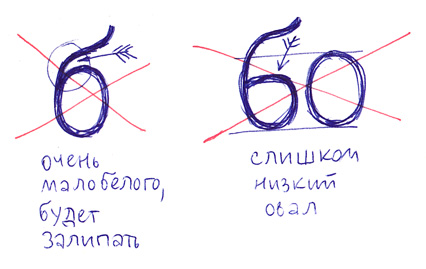 б
бо
очень
мало белого,
будет
залипать
слишком
низкий
овал